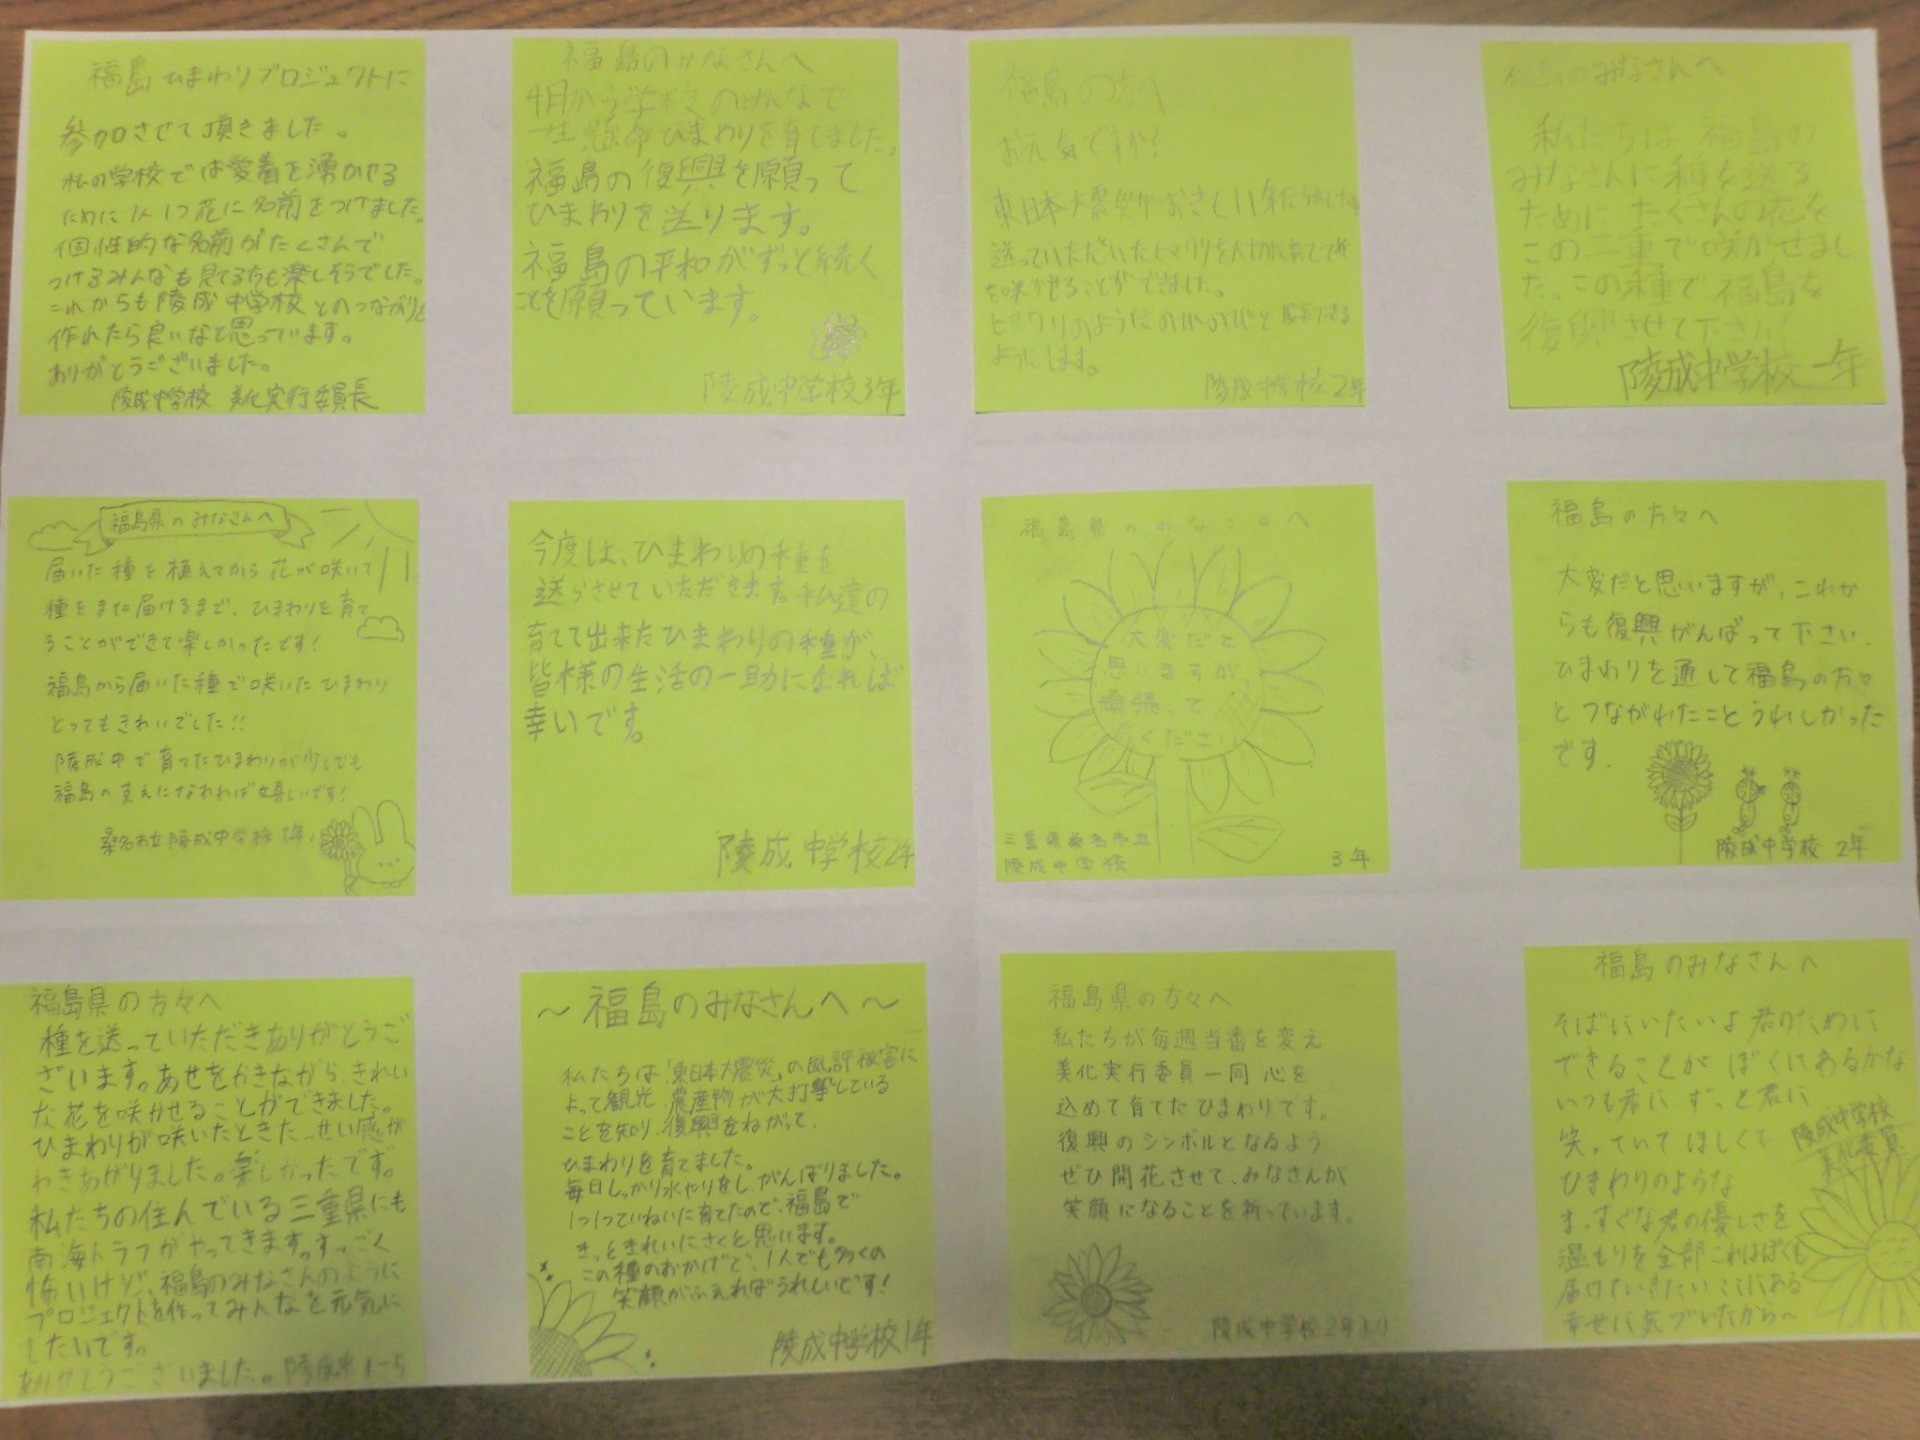 福島ひまわりプロジェクトに
参加させて頂きました。
私の学校では愛着を湧かせる
ために1人1つ花に名前をつけました。
個性的な名前がたくさんで
つけるみんなも見てる方も楽しそうでした。
これからも陵成中学校とのつながりを
作れたら良いなと思っています。
ありがとうございました。
陵成中学校 美化実行委員長
福島のみなさんへ
4月から学校のみんなで
一生懸命ひまわりを育てました。
福島の復興を願って
ひまわりを送ります。
福島の平和がずっと続く
ことを願っています。
陵成中学校3年
福島の方へ
お元気ですか?
東日本大震災がおきて11年
送っていただいたヒマワリを大切に育てて花
を咲かせることができました。
ヒマワリのようにのびのびと
ようにします。
陵成中学校2年
福島のみなさんへ
私たちは福島の
みなさんに種を送る
ためにたくさんの花を
この三重で咲かせまし
た。この種で福島を
復興させて下さい!
陵成中学校一年
福島県のみなさんへ
届いた種を植えてから花が咲いて
種をまた届けるまで、ひまわりを育て
ることができて楽しかったです!
福島から届いた種で咲いたひまわり
とってもきれいでした!!
陵成中で育てたひまわりが少しでも
福島の支えになれれば嬉しいです!
桑名市立陵成中学校1年
今度は、ひまわりの種を
送らさせていただきます。私達の
育てて出来たひまわりの種が、
皆様の生活の一助になれば
幸いです。
陵成中学校2年
福島県のみなさんへ
大変だと
思いますが、
頑張って
ください
三重県桑名市立
陵成中学校
3年
福島の方々へ
大変だと思いますが、これか
らも復興がんばって下さい.
ひまわりを通して福島の方々
とつながれたことうれしかった
です.
陵成中学校 2年
福島県の方々へ
種を送っていただきありがとうご
ざいます。あせをかきながら、きれい
な花を咲かせることができました。
ひまわりが咲いたときたっせい感が
わきあがりました。楽しかったです。
私たちの住んでいる三重県にも
南海トラフがやってきます。すっごく
怖いけど、福島のみなさんのように
プロジェクトを作ってみんなを元気に
したいです。
ありがとうございました。陵成中1-5
〜福島のみなさんへ〜
私たちは「東日本大震災」の風評被害に
よって観光、農産物が大打撃している
ことを知り、復興をねがって、
ひまわりを育てました。
毎日しっかり水やりをし、がんばりました。
1つ1つていねいに育てたので、福島で
きっときれいにさくと思います。
この種のおかげで、1人でも多くの
笑顔がふえればうれしいです!
陵成中学校1年
福島県の方々へ
私たちが毎週当番を変え
美化実行委員一同 心を
込めて育てたひまわりです。
復興のシンボルとなるよう
ぜひ開花させて、みなさんが
笑顔になることを祈っています。
陵成中学校2年より
福島のみなさんへ
そばにいたいよ君のために
できることがぼくにあるかな
いつも君にずっと君に
笑っていてほしくて
ひまわりのような
まっすぐな君の優しさを
温もりを全部これからはぼくも
届けていきたいここにある
幸せに気づいたから〜
陵成中学校
美化委員